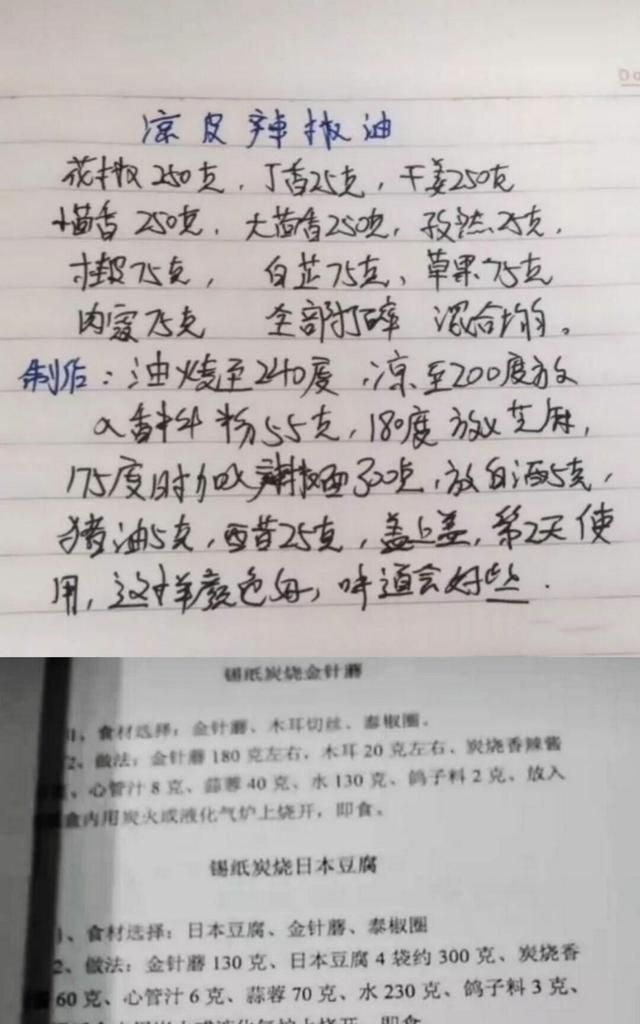 凉皮辣椒油
花椒250克,丁香25克,干姜250克
小茴香250克,大茴香250克,孜然25克,
桂皮75克,白芷75克、草果75克
肉蔻75克 全部打碎 混合均匀。
制作:油烧至240度,凉至200度放
入香料粉55克,180度放入芝麻,
175度时加入辣椒面300克,放白酒5克,
猪油5克,白醋25克,盖上盖,第2天使
用,这样颜色好,味道会好些.
锡纸炭烧金针蘑
1、食材选择:金针蘑、木耳切丝、泰椒圈。
2、做法:金针蘑180克左右,木耳20克左右、炭烧香辣酱
、心管汁8克、蒜蓉40克、水130克、鸽子料2克、放入
盒内用炭火或液化气炉上烧开,即食。
锡纸炭烧日本豆腐
1、食材选择:日本豆腐、金针蘑、泰椒圈
2、做法:金针蘑130克、日本豆腐4袋约300克、炭烧香
60克、心管汁6克、蒜蓉70克、水230克、鸽子料3克、
用炭火或液化气炉上烧开,即食